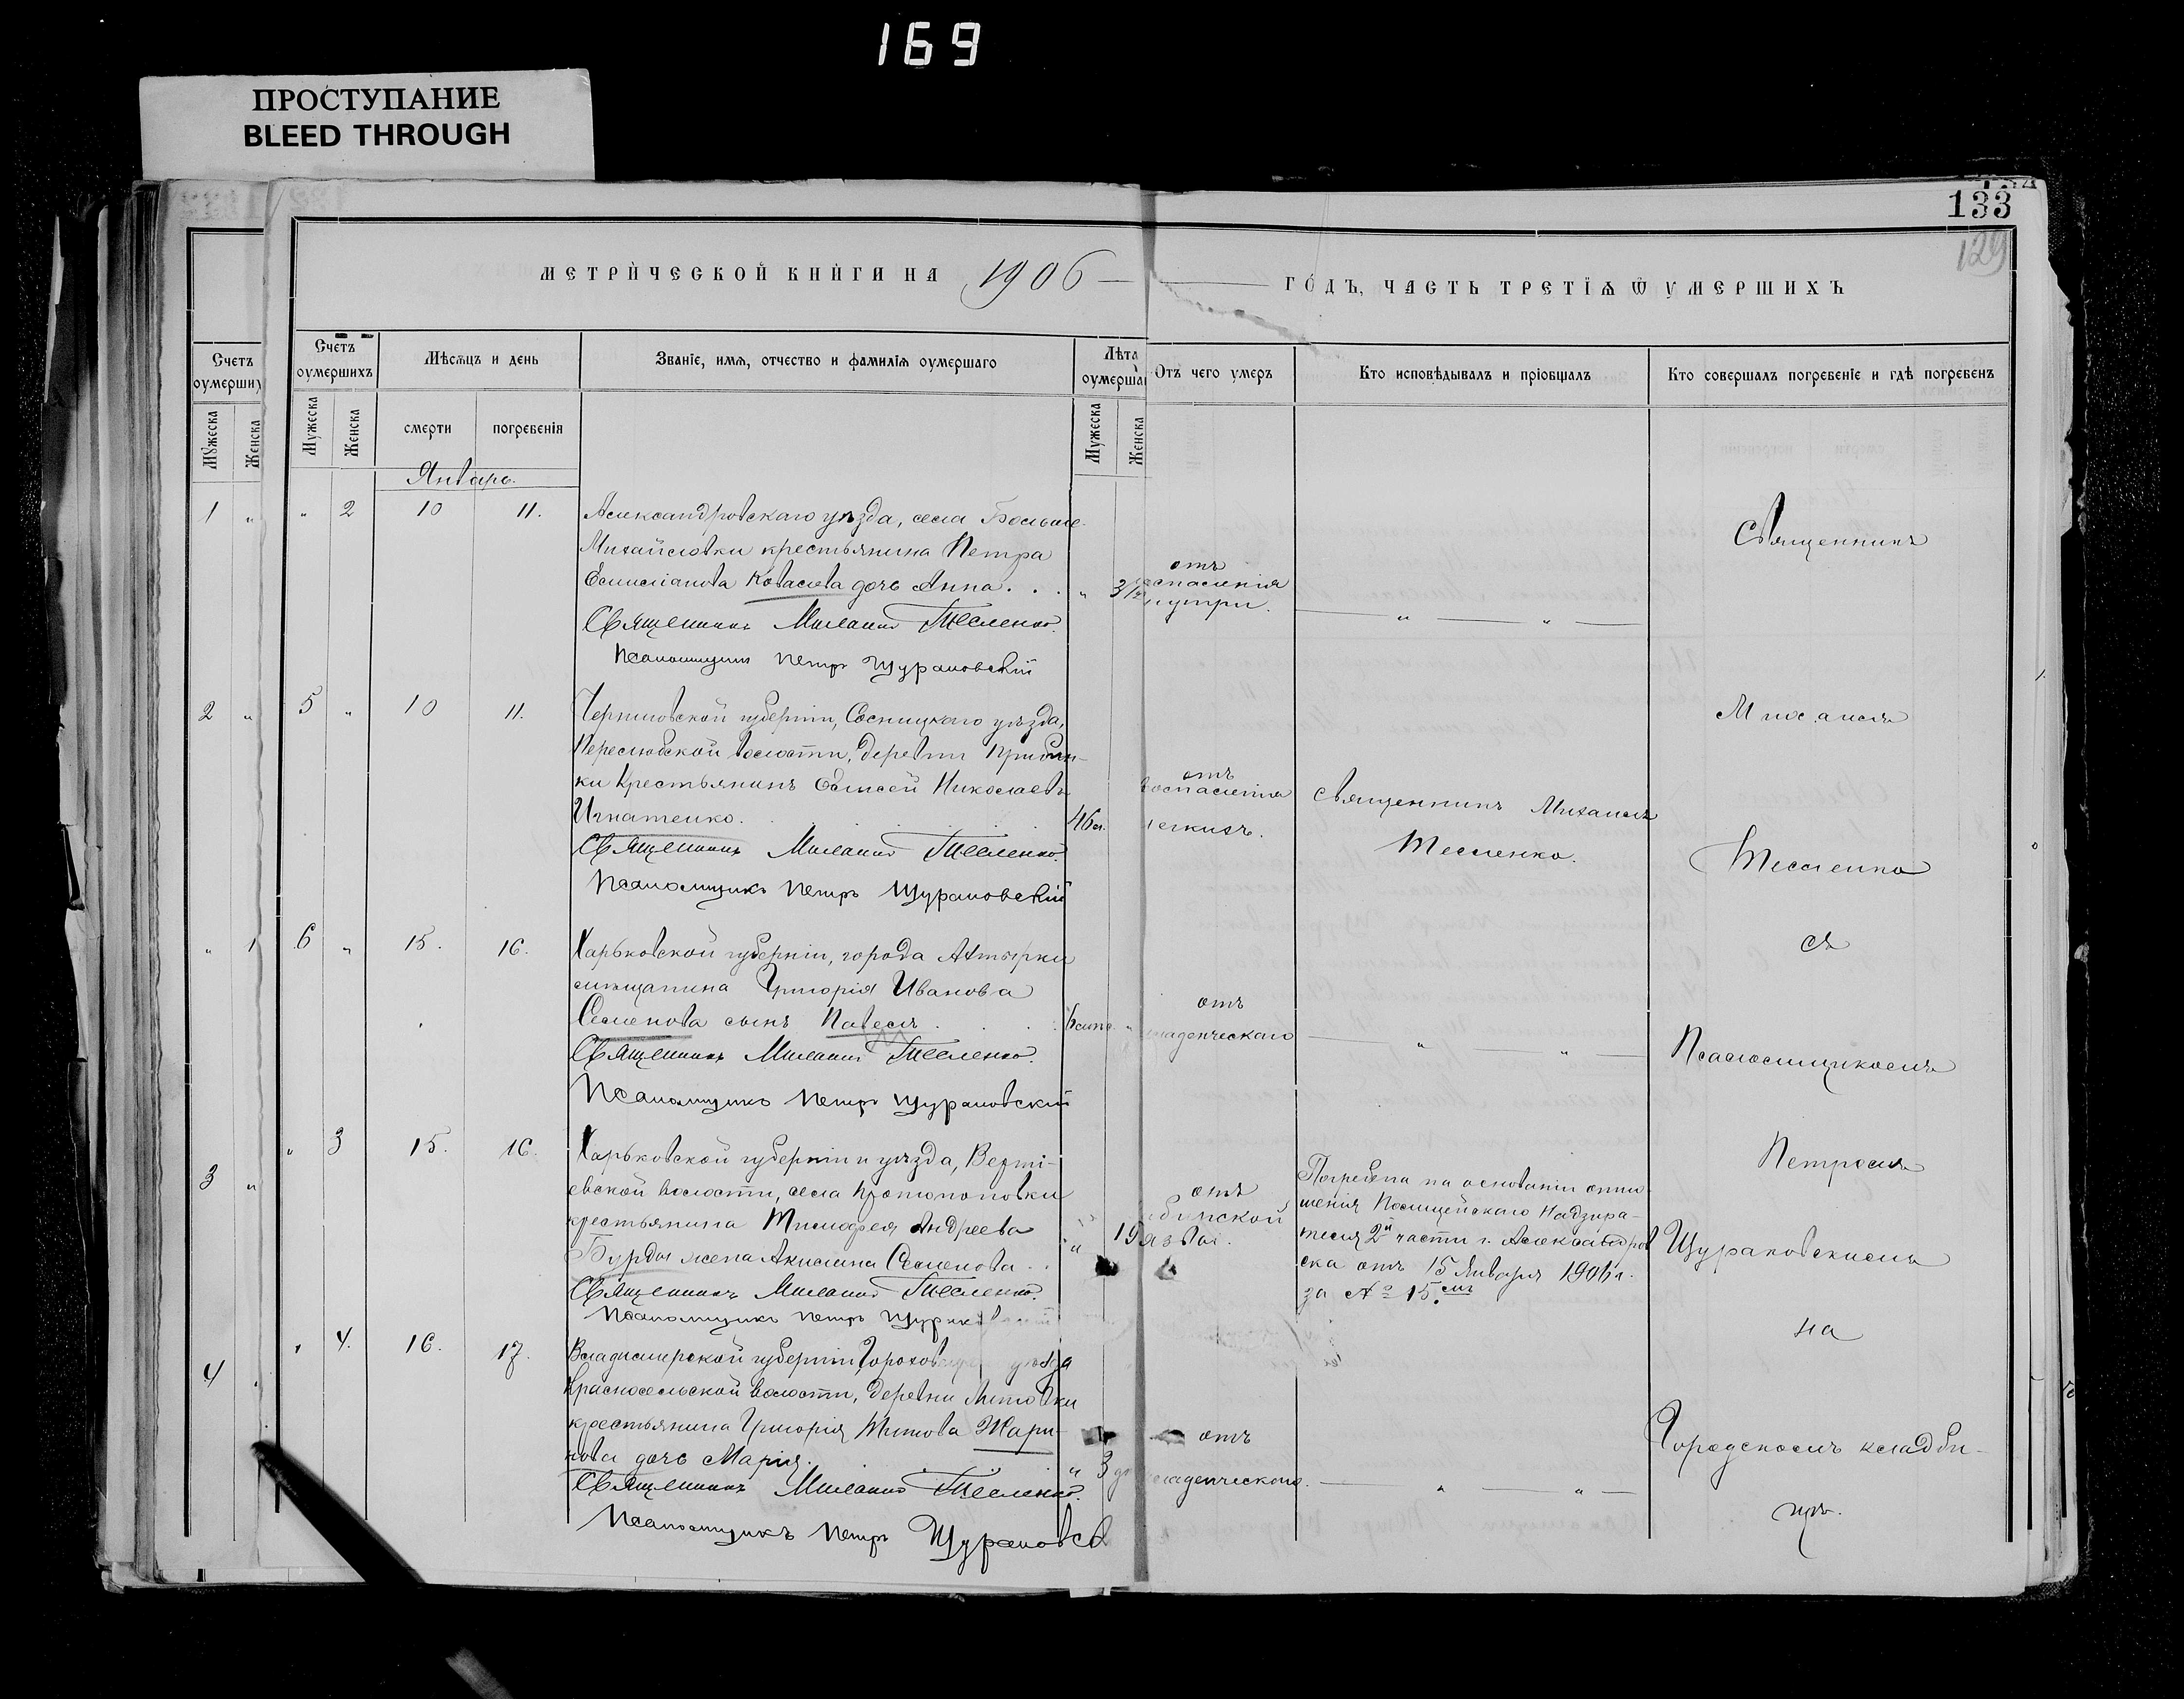 169
ПРОСТУПАНИЕ
BLEED THROUGH
133
129
МЕТРИЧЕСКОЙ КНИГИ НА 1906 ГОДЪ, ЧАСТЬ ТРЕТІѦ Ѿ УМЕРШИХЪ
Счетъ оумерших
Мужеска
Женска
Счетъ оумершихъ
Мужеска
Женска
Мѣсѧцъ и день
смерти
погребенія
Званіе, имѧ, отчество и фамиліѧ оумершаго
Лѣта оумерша
Мужеска
Женска
Отъ чего умеръ
Кто исповѣдывалъ и пріобщалъ
Кто совершалъ погребеніе и гдѣ погребенъ
Январь.
1 "
" 2 10 11.
Александровскаго уѣзда, села Больше-
Михайловки крестьянина Петра
Емиліанова Ковалева дочь Анна . . .
Священникъ Михаилъ Тесленко.
Псаломщикъ Петръ Щурановскій
" 3/12
отъ
воспаленія
внутри.
" "
2 "
5 " 10 11.
Черниговской губерніи, Сосницкаго уѣзда,
Перелюбской волости, деревни
ки крестьянинъ Евлисей Николаевъ
Игнатенко.
Священникъ Михаилъ Тесленко.
Псаломщикъ Петръ Щурановскій
46
отъ
воспаленія
легкихъ.
Священникъ Михаилъ
Тесленко.
" 1
6 " 15. 16.
Харьковской губерніи, города Ахтырки
мѣщанина Григорія Иванова
Семенова сынъ Павелъ . . .
Священникъ Михаилъ Тесленко.
Псаломщикъ Петръ Щурановскій
6 "
отъ
младенческаго
" "
3 "
" 3 15. 16.
Харьковской губерніи и уѣзда,
евской волости, села Протопоповки
крестьянина Тимофея Андреева
Бурды жена Акилина Семенова . .
Священникъ Михаилъ Тесленко.
Псаломщикъ Петръ
" 19
отъ
язвы.
Погребена на основаніи отно-
шенія Полицейскаго Надзира-
теля 2й части г. Александров
ска отъ 15 Января 1906 г.
за № 15.
4
" 4. 16. 17.
Владимирской губерніи, уѣзда
Красносельской волости, деревни
крестьянина Григорія Титова Жари-
нова дочь Марія.
Священникъ Михаилъ Тесленко.
Псаломщикъ Петръ Щурановс
" 3
отъ
младенческаго.
" "
Священникъ
Михаилъ
Тесленко
съ
Псаломщикомъ
Петромъ
Щурановскимъ
на
Городскомъ кладби-
щѣ.